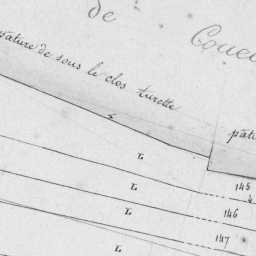 de
pature de sous le clos turette
L
145
L
146
L
147
L